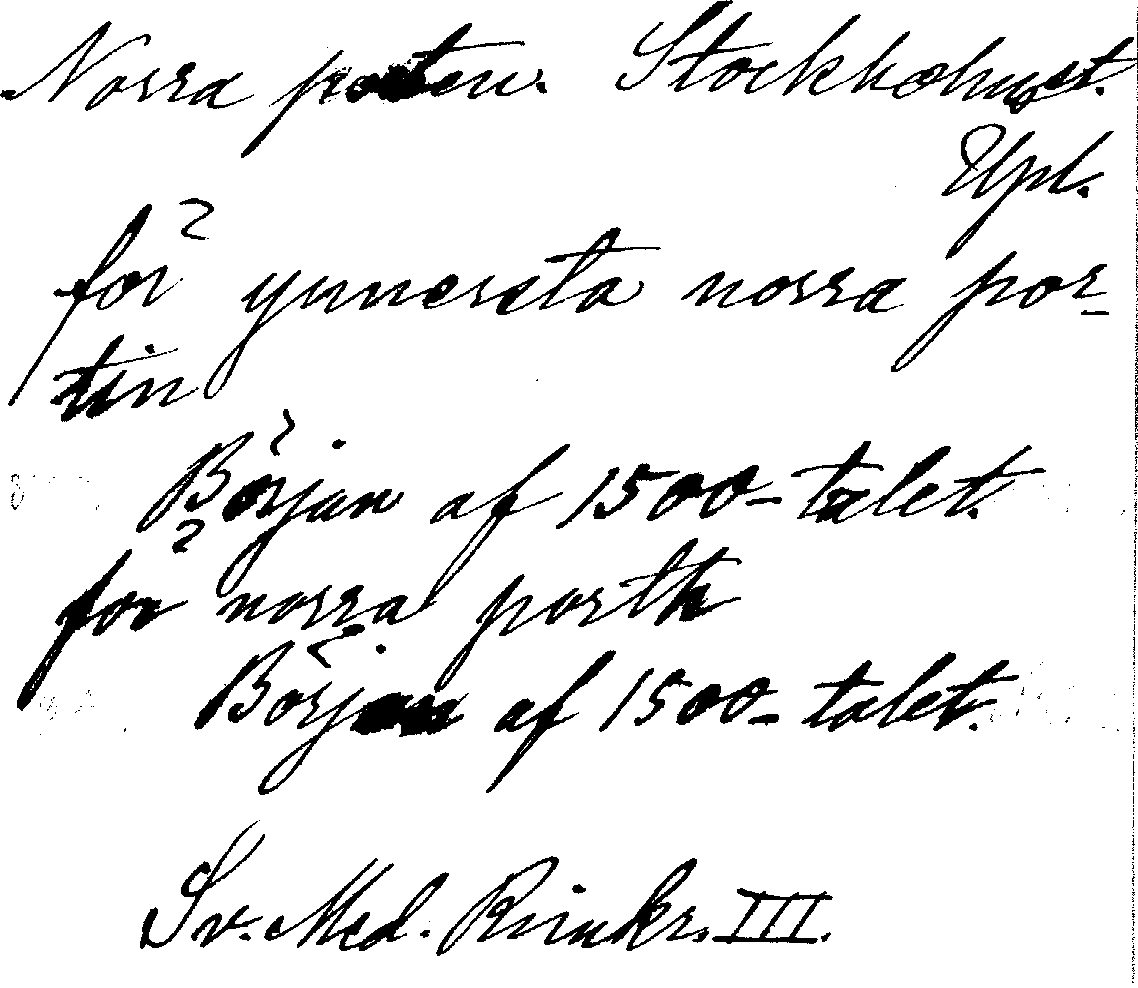 Norra porten. Stockholms st.
Upl.
för ynnersta norra por-
tin
Början af 1500-talet.
för norra porth
Början af 1500-talet.
Sv. Med. Rimkr. III.